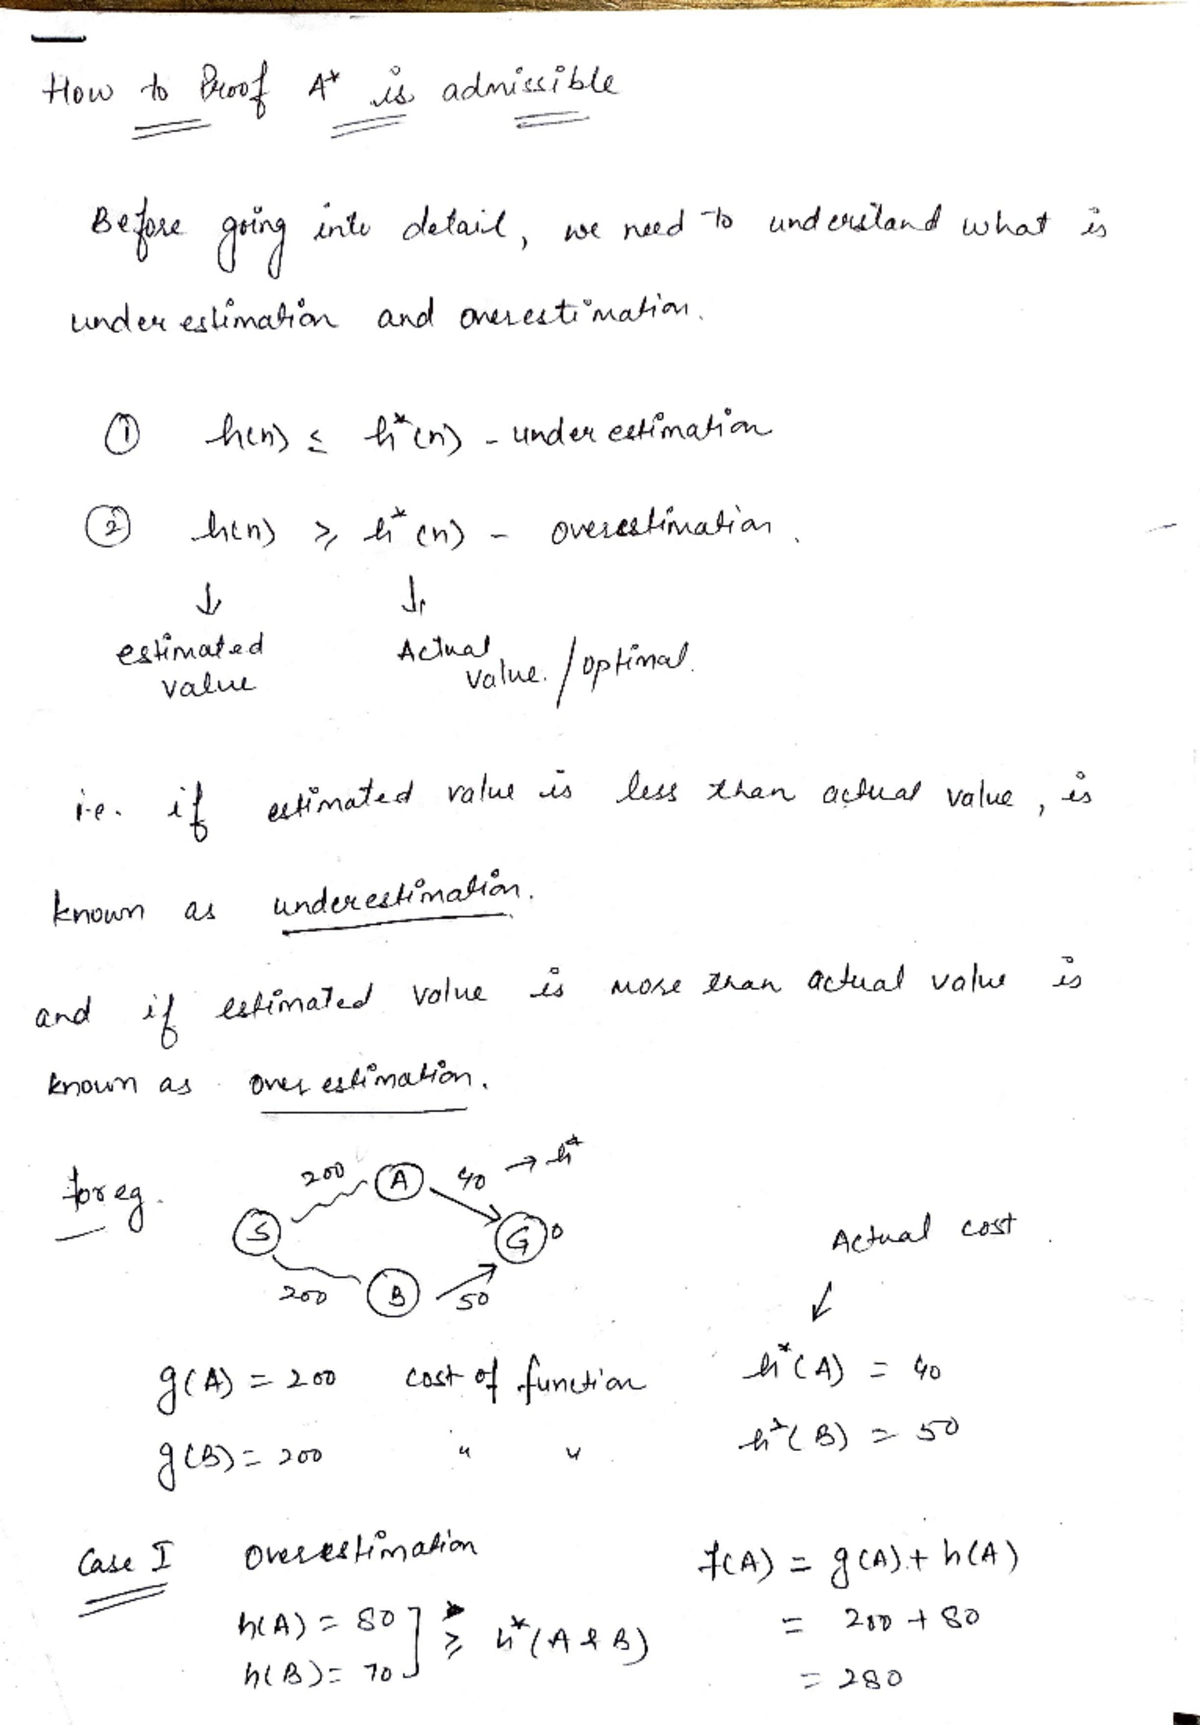 How to Proof A* is admissible
Before going into detail, we need to understand what is
underestimation and overestimation.
① h(n) ≤ h*(n) - underestimation
② h(n) ≥ h*(n) - overestimation.
↓ ↓
estimated value Actual value. / optimal.
i.e. if estimated value is less than actual value, is
known as underestimation.
and if estimated value is more than actual value is
known as overestimation.
for eg.
200 A 40 → h*
S G 0
200 B 50
Actual cost.
↙
g(A) = 200 cost of function h*(A) = 40
g(B) = 200 " " h*(B) = 50
Case I Overestimation f(A) = g(A) + h(A)
h(A) = 80 ] ≥ h*(A & B) = 200 + 80
h(B) = 70 = 280